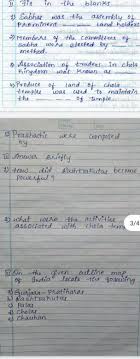 II Fill in the blanks
1) Sabhas was the assembly of
prominent ___ land holders
2) Members of the committees of
sabha were elected by ___
method.
3) Association of traders in chola
kingdom was known as ___
4) Produce of land of chola
temples was used to maintain
the ___ of temple.
5) Prashastis were composed
by ___
III Answer Briefly
1) How did Rashtrakutas become
powerful?
2) What were the activities
associated with chola temples
3/4
IV On the given outline map
of India locate the following
1) Gurjara-Pratiharas
2) Rashtrakutas
3) Palas
4) Cholas
5) Chauhan